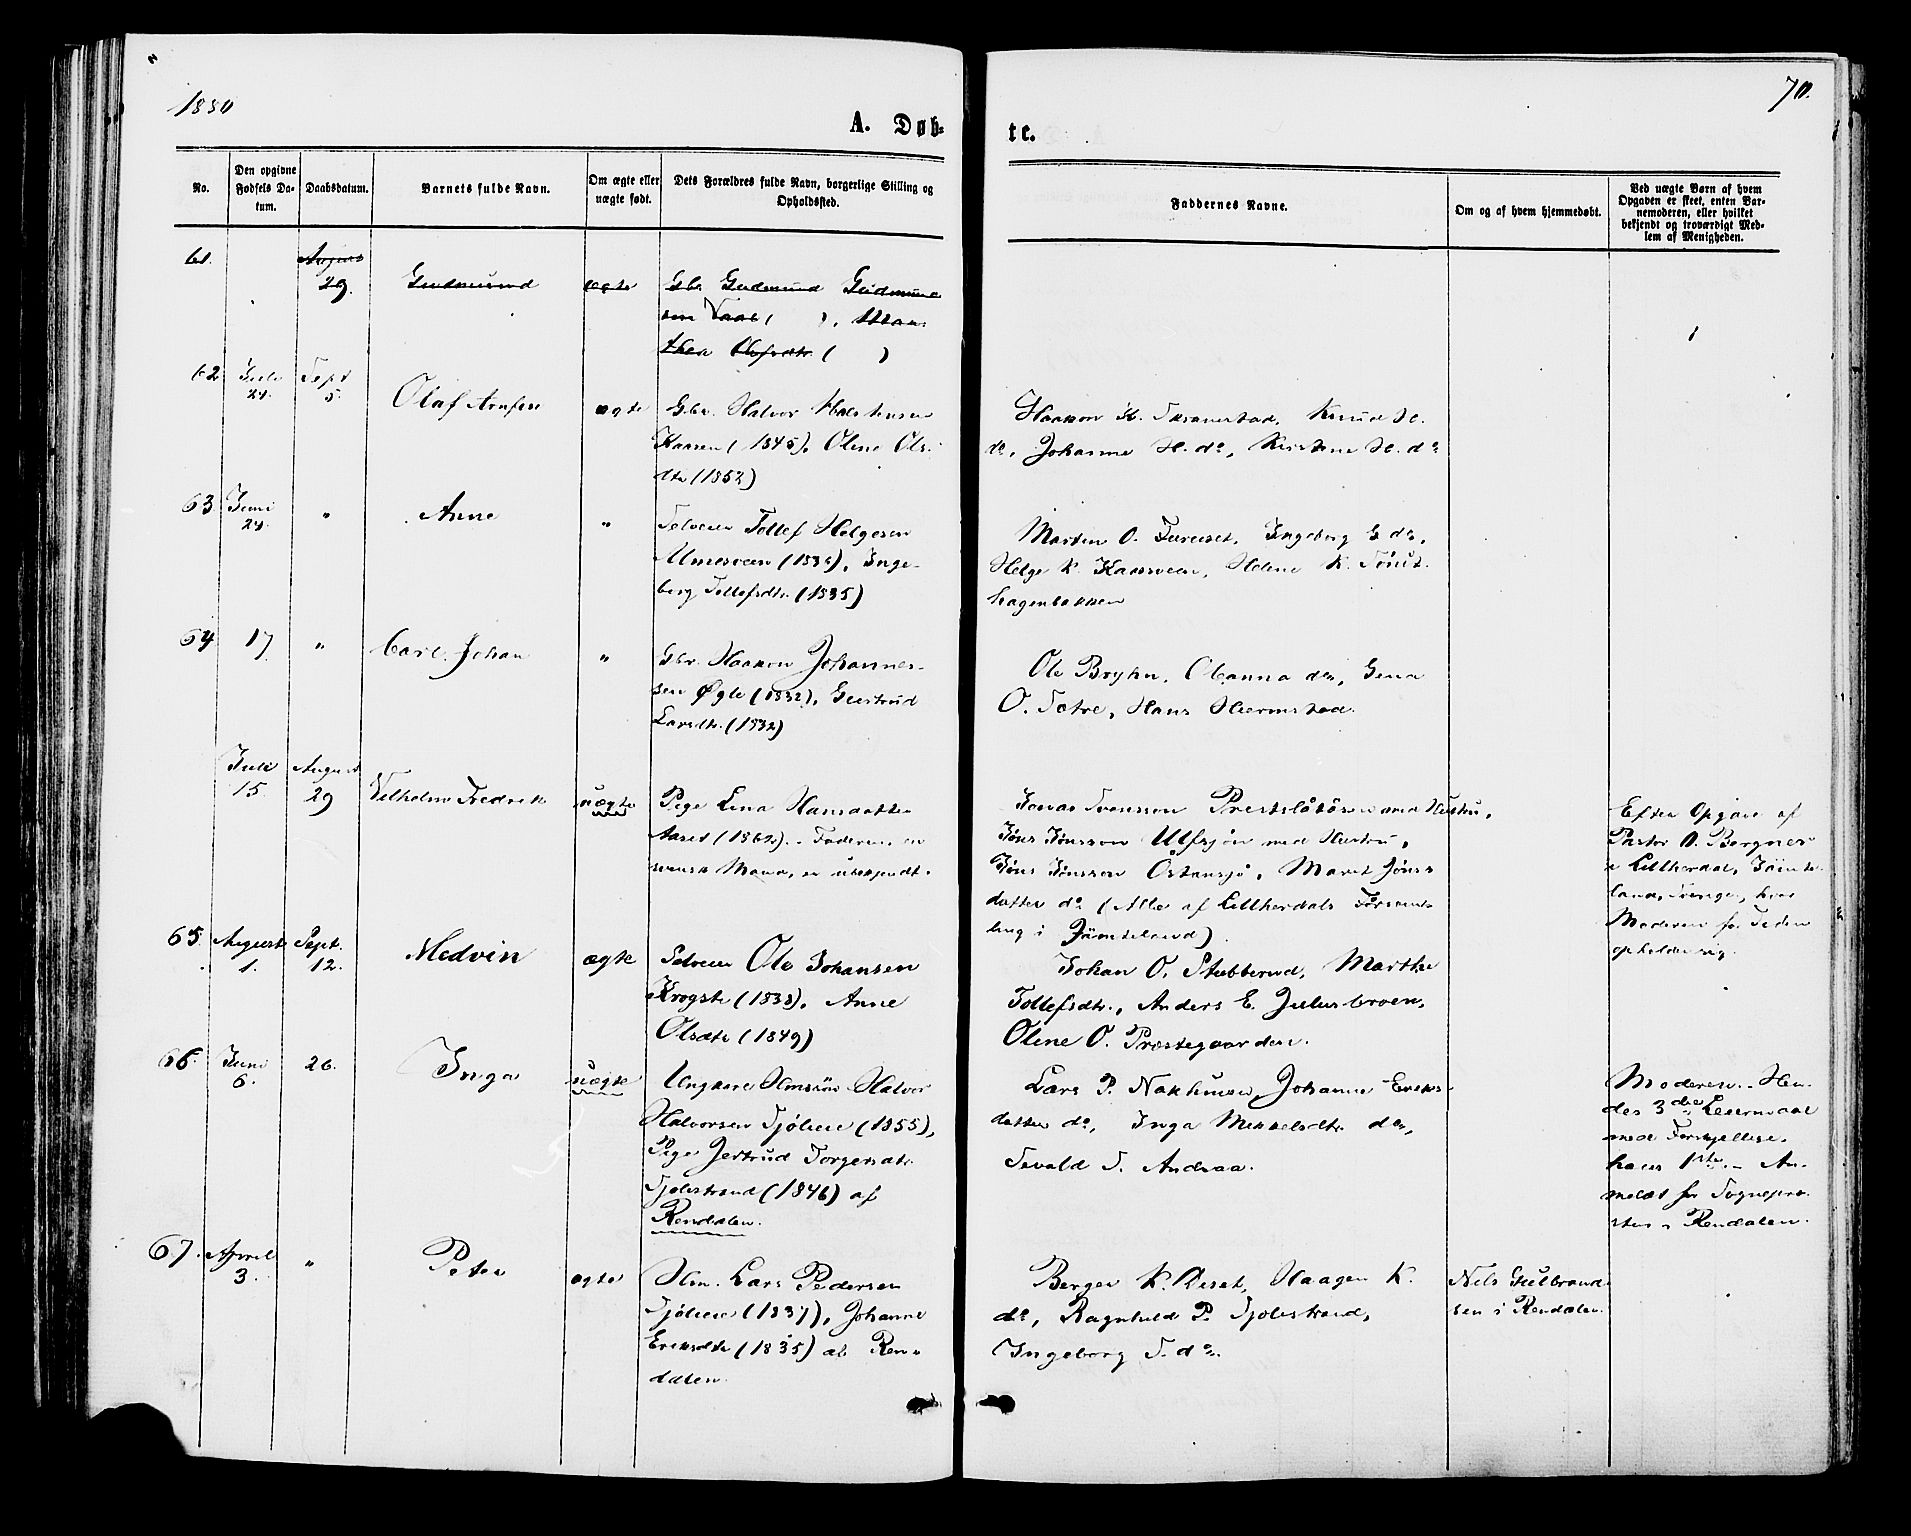 1880
70.
A. Døb-
te.
No.
Den opgivne
Fødsels Da-
tum.
Daabsdatum.
Barnets fulde Navn.
Om ægte eller
uægte født.
Dets Forældres fulde Navn, borgerlige Stilling og
Opholdssted.
Faddernes Navne.
Om og af hvem hjemmedøbt.
Ved uægte Børn af hvem
Opgaven er skeet, enten Bar-
nemoderen, eller hvilket
bekjendt og troværdigt Med-
lem af Menigheden.
61.
August
29.
Gudmund
ægte
Gbr. Gudmund Gudmund
sen ( ),
thea Olofsdtr. ( )
62
Juli
24.
Sept
5.
Olaf
ægte
Gbr. Halvor
Kaasen (1845), Oline Ols-
dtr (1852)
Haakon H. Knud H.
do, Johanne H. do, Kirstine H. do
63
Juni
24.
"
Anne
"
Selveier Tollef Helgesen
Inge-
borg Tollefsdtr. (1835)
Martin O. Ingeborg E do,
Helge K. Kaasveen, Helene K.
hagenbakken
64
17
"
Carl Johan
"
Gbr. Haakon Johannes-
sen Øgle (1832), Gertrud
Larsdtr. (1832)
Ole Bryhn, Oleanna do, Gena
O. Sætre, Hans
Juli
15.
August
29
Vilhelm Fredrik
uægte
Pige Lina Hansdatter
Aaset (1862). - Faderen, en
svensk Mand, er ubekjendt.
Jonas Svensson med Hustru,
Jöns Jönsson Ulfsjön med Hustru,
Jöns Jönsson Östansjö, Maret Jöns
datter do (Alle af Lillherdals Församl
ling i Jämtland)
Efter Opgave af
Pastor O. Bergner
i Lillherdal, Jämt-
land, Sverige, hvor
Moderen for Tiden
opholder sig.
65.
August
1.
Sept.
12.
Medvin
ægte
Selveier Ole Johansen
(1838), Anne
Olsdtr (1849)
Johan O. Stubberud, Marthe
Tollefsdtr., Anders E. Julusbroen,
Oline O. Præstegaarden.
66.
Juni
6.
26.
Inga
uægte
Ungkarl Halvor
Halvorsen Sjølien (1855),
Pige Jertrud Torgersdtr.
Sjølistrand (1846) af
Rendalen.
Lars P. Johanne Eriks-
datter do, Inga Mikkelsdtr do,
Sevald T. Andraa.
Moderen. - Hen-
des 3die Leiermaal
med Forskjellige,
hans 1ste. - An-
meldt for Sognepræ-
sten i Rendalen.
67.
April
3.
"
Peter
ægte
Hsm. Lars Pedersen
Sjølien (1837), Johanne
Eriksdtr (1835) af Ren-
dalen.
Berger K. Haagen K.
do, Ragnhild P. Sjølistrand,
Ingeborg T. do.
Nils Gulbrand-
sen i Rendalen.